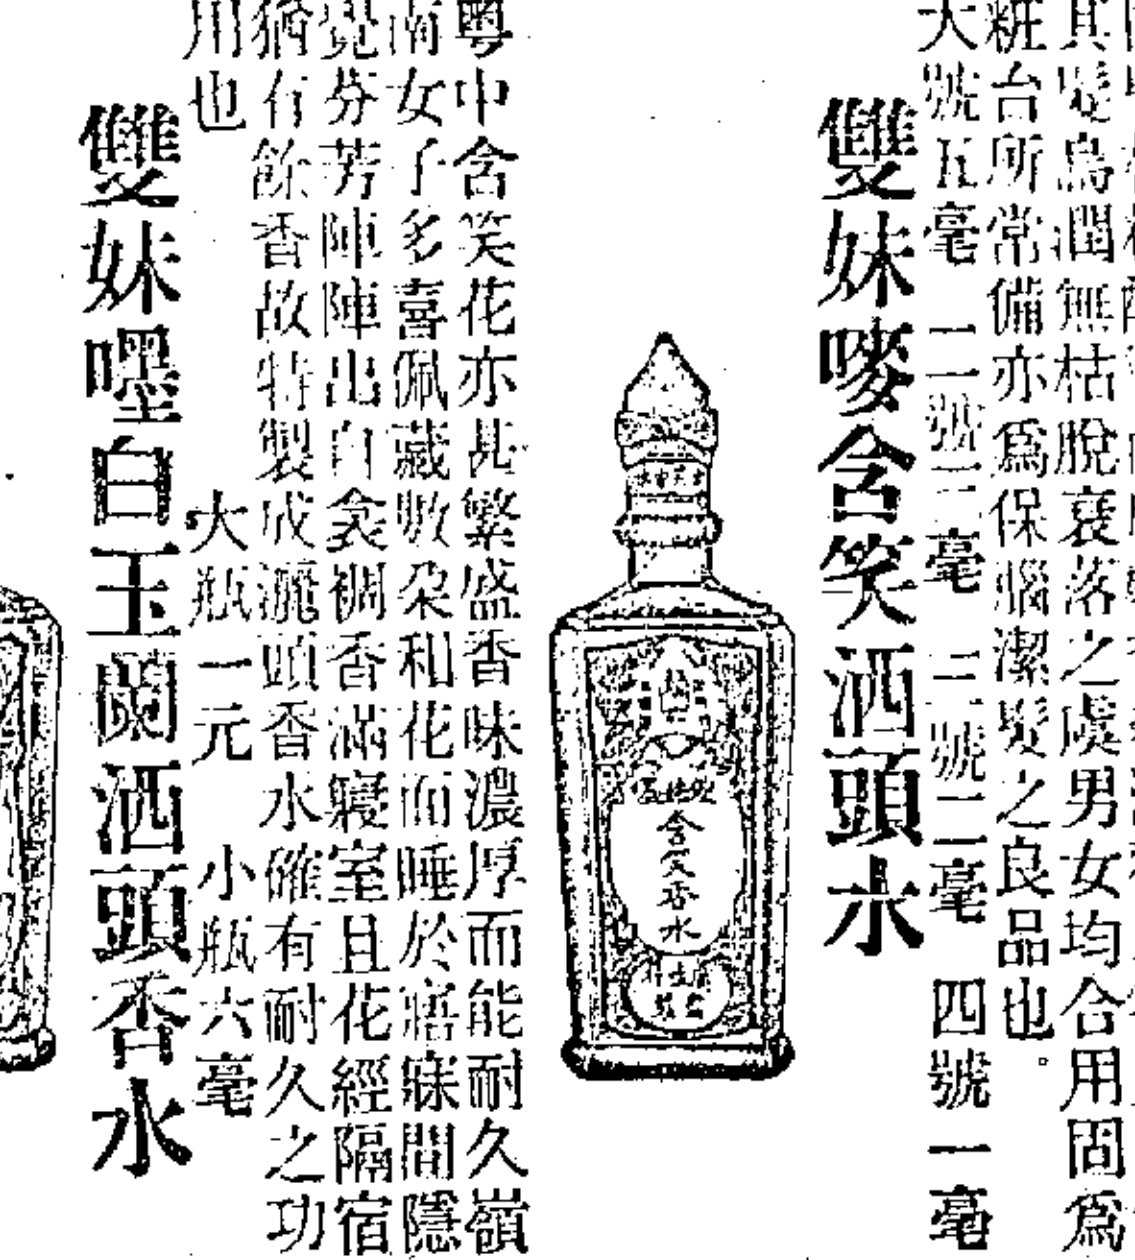 其髮烏潤無枯脫衰落之虞男女均合用固爲
粧台所常備亦爲保腦潔髮之良品也。
大號五毫 二號三毫 三號二毫 四號一毫
雙妹嘜含笑洒頭水
含笑香水
粵中含笑花亦甚繁盛香味濃厚而能耐久嶺
南女子多喜佩藏數朶和花而睡於寤寐間隱
覺芬芳陣陣出自衾裯香滿寢室且花經隔宿
猶有餘香故特製成灑頭香水確有耐久之功
用也
大瓶一元 小瓶六毫
雙妹嚜白玉蘭洒頭香水